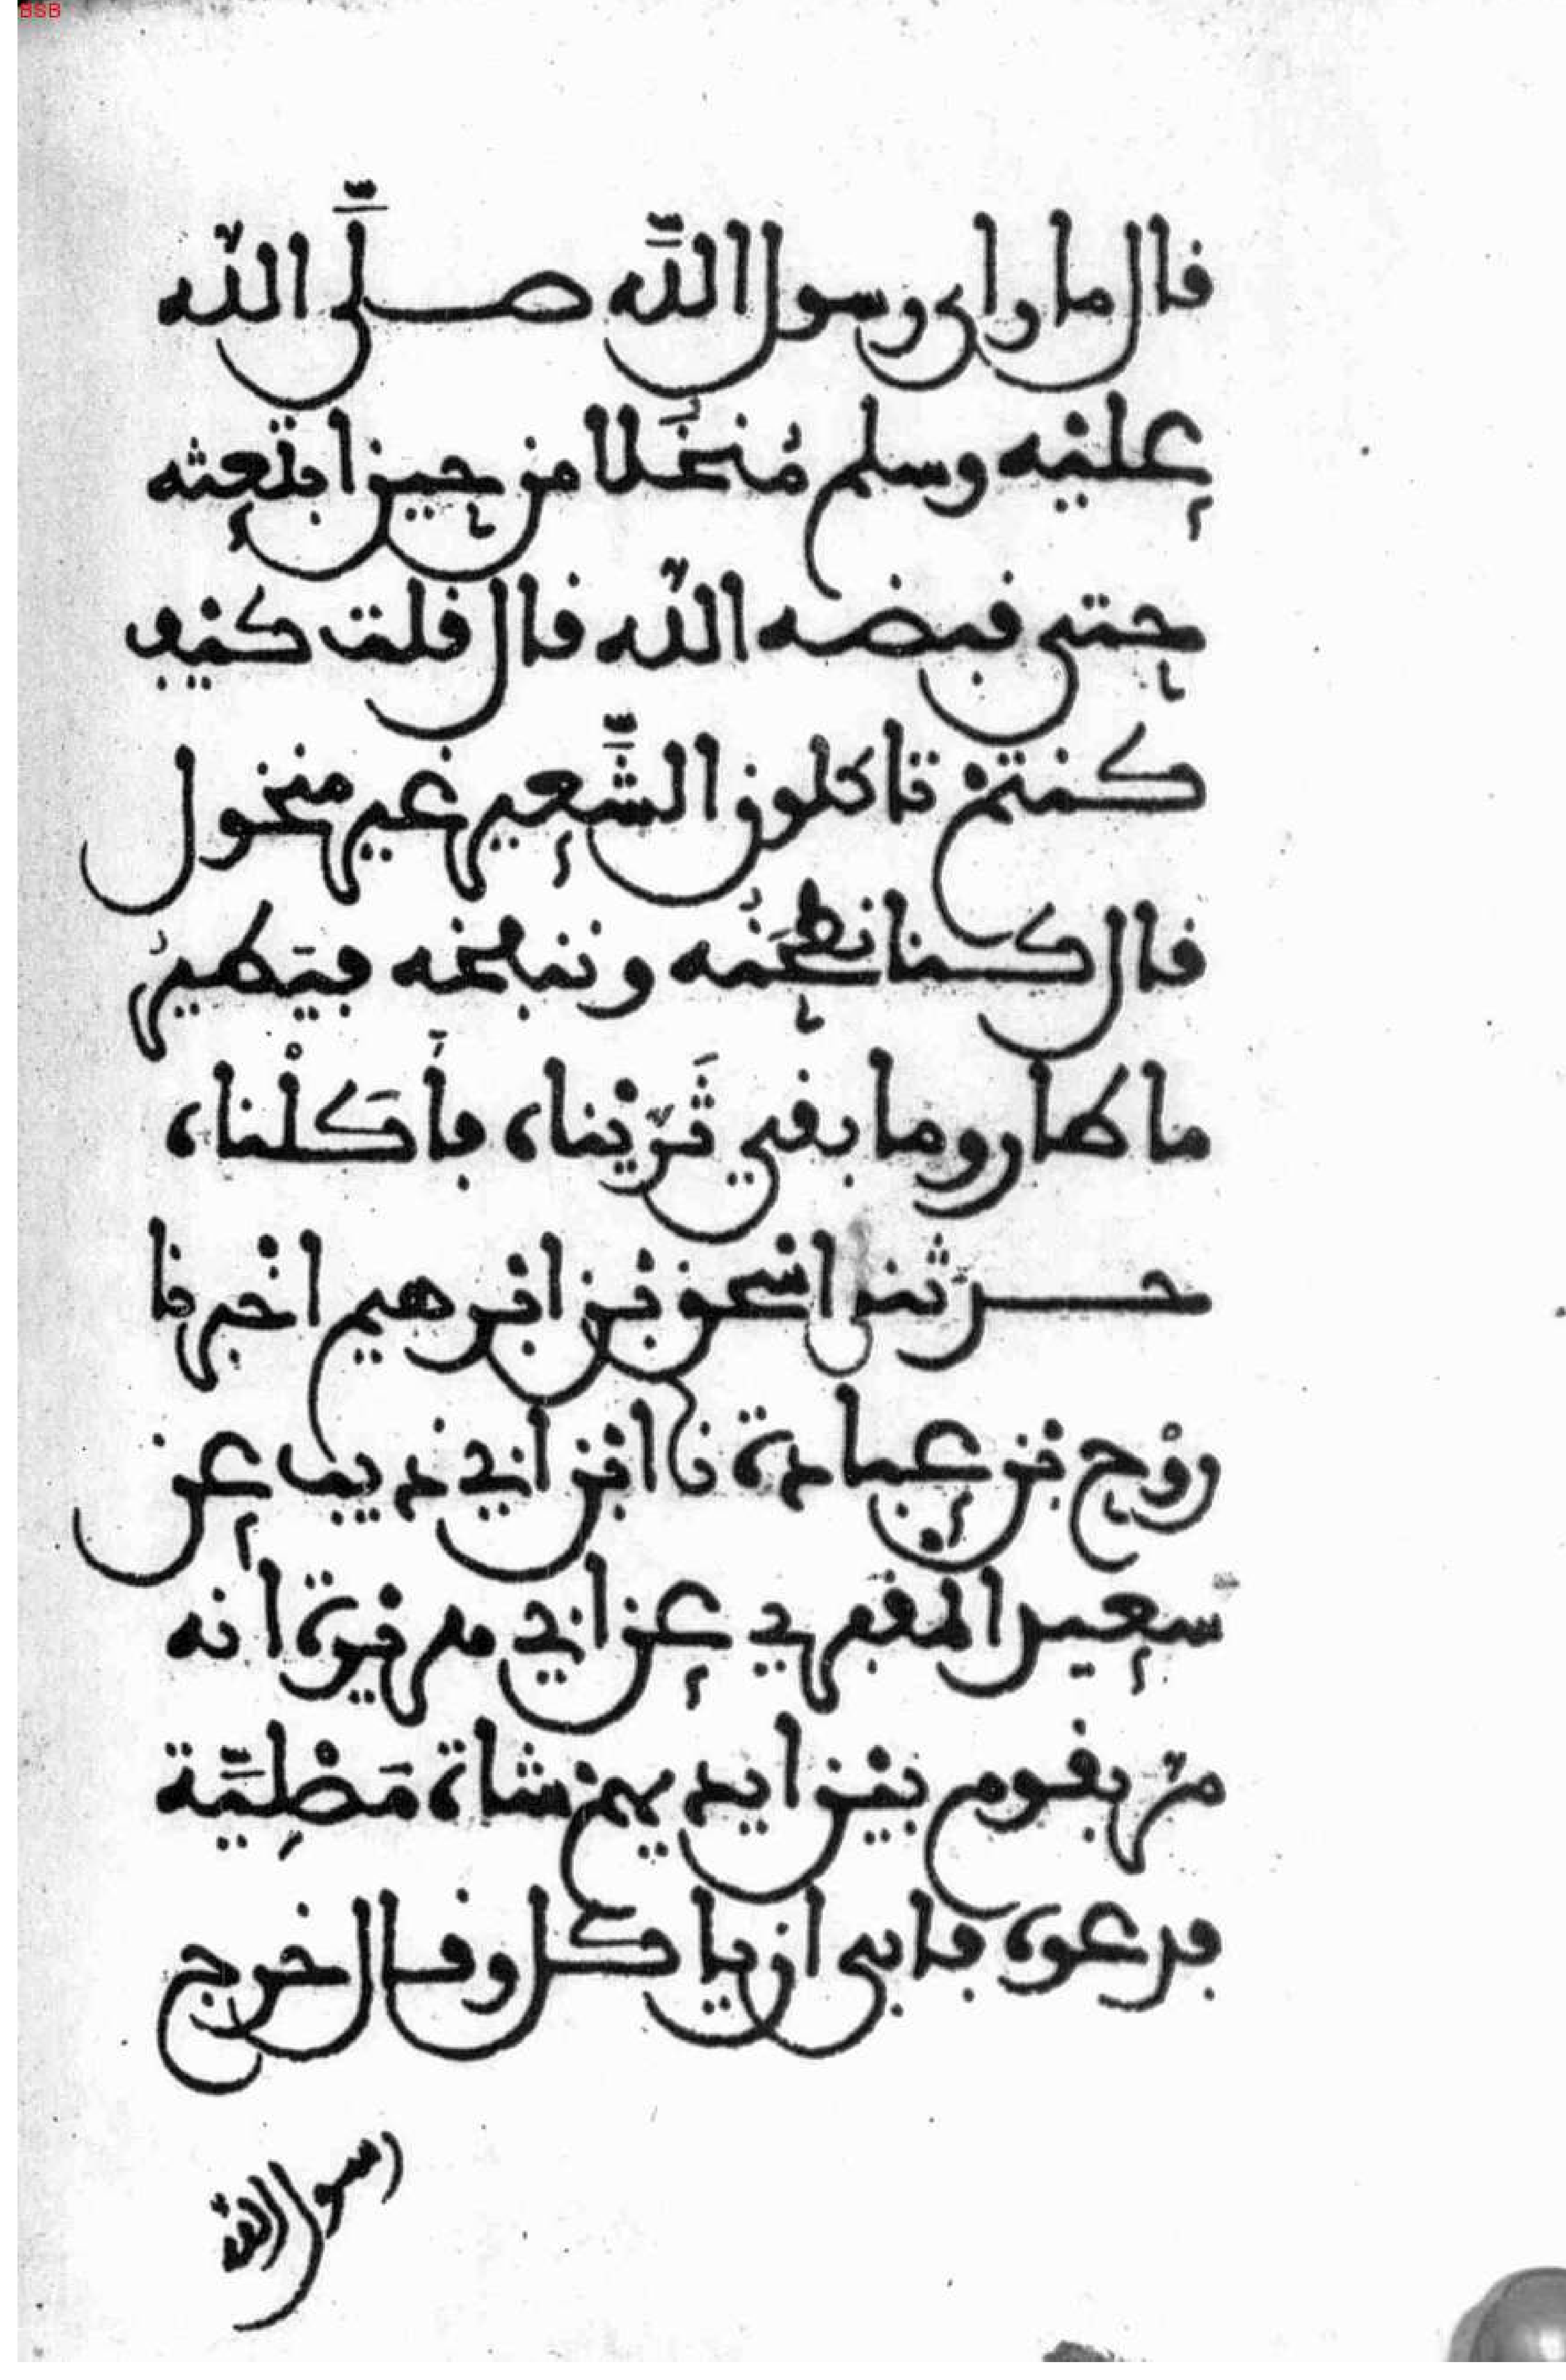 BSB
قال ما راى رسول اللّه صلَّى اللّه
عليْه وسلم مُنخُلا من حين ابتعثه
حتى قبضه اللّه قال قلت كيْف
كنتمْ تاكلون الشَّعير غير منخول
قال كنا نطحَنُه وننفخه فيَطيرُ
ما طار وما بقي ثَرّيْنا، فأَكَلْنا،
حدثنى اسْحق بْن ابْرهيم اخْبرنا
روْح بْن عبادة، نا ابْن ابي ذيب عن
سعيد المقبري عن ابي هريْرة، انه
مرّ بقوم بيْن ايديهمْ شاة، مَصْلِيَّة
فدعوه، فابى ان ياكل وقال خرج
رسول اللّه